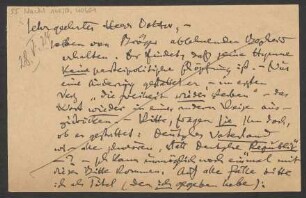 Sehr geehrter Herr Doktor, –
soeben von Bröger ablehnenden Bescheid
erhalten. Er findet, daß seine Hymne
keine parteipolitische Schöpfung ist. – Nur
eine Änderung gestattet er, in erster
"die Freiheit wieder haben" – das
Wort wieder in eine andere Weise aus-
zudrücken. – Bitte, fragen Sie ihn doch,
ob er gestattet: Deutsches Vaterland
wir schwören, statt Deutsche Republik
"? – Ich kann unmöglich noch einmal mit
dieser Bitte kommen. Auf alle Fälle bitte
ich als Titel (den ich gegeben habe):